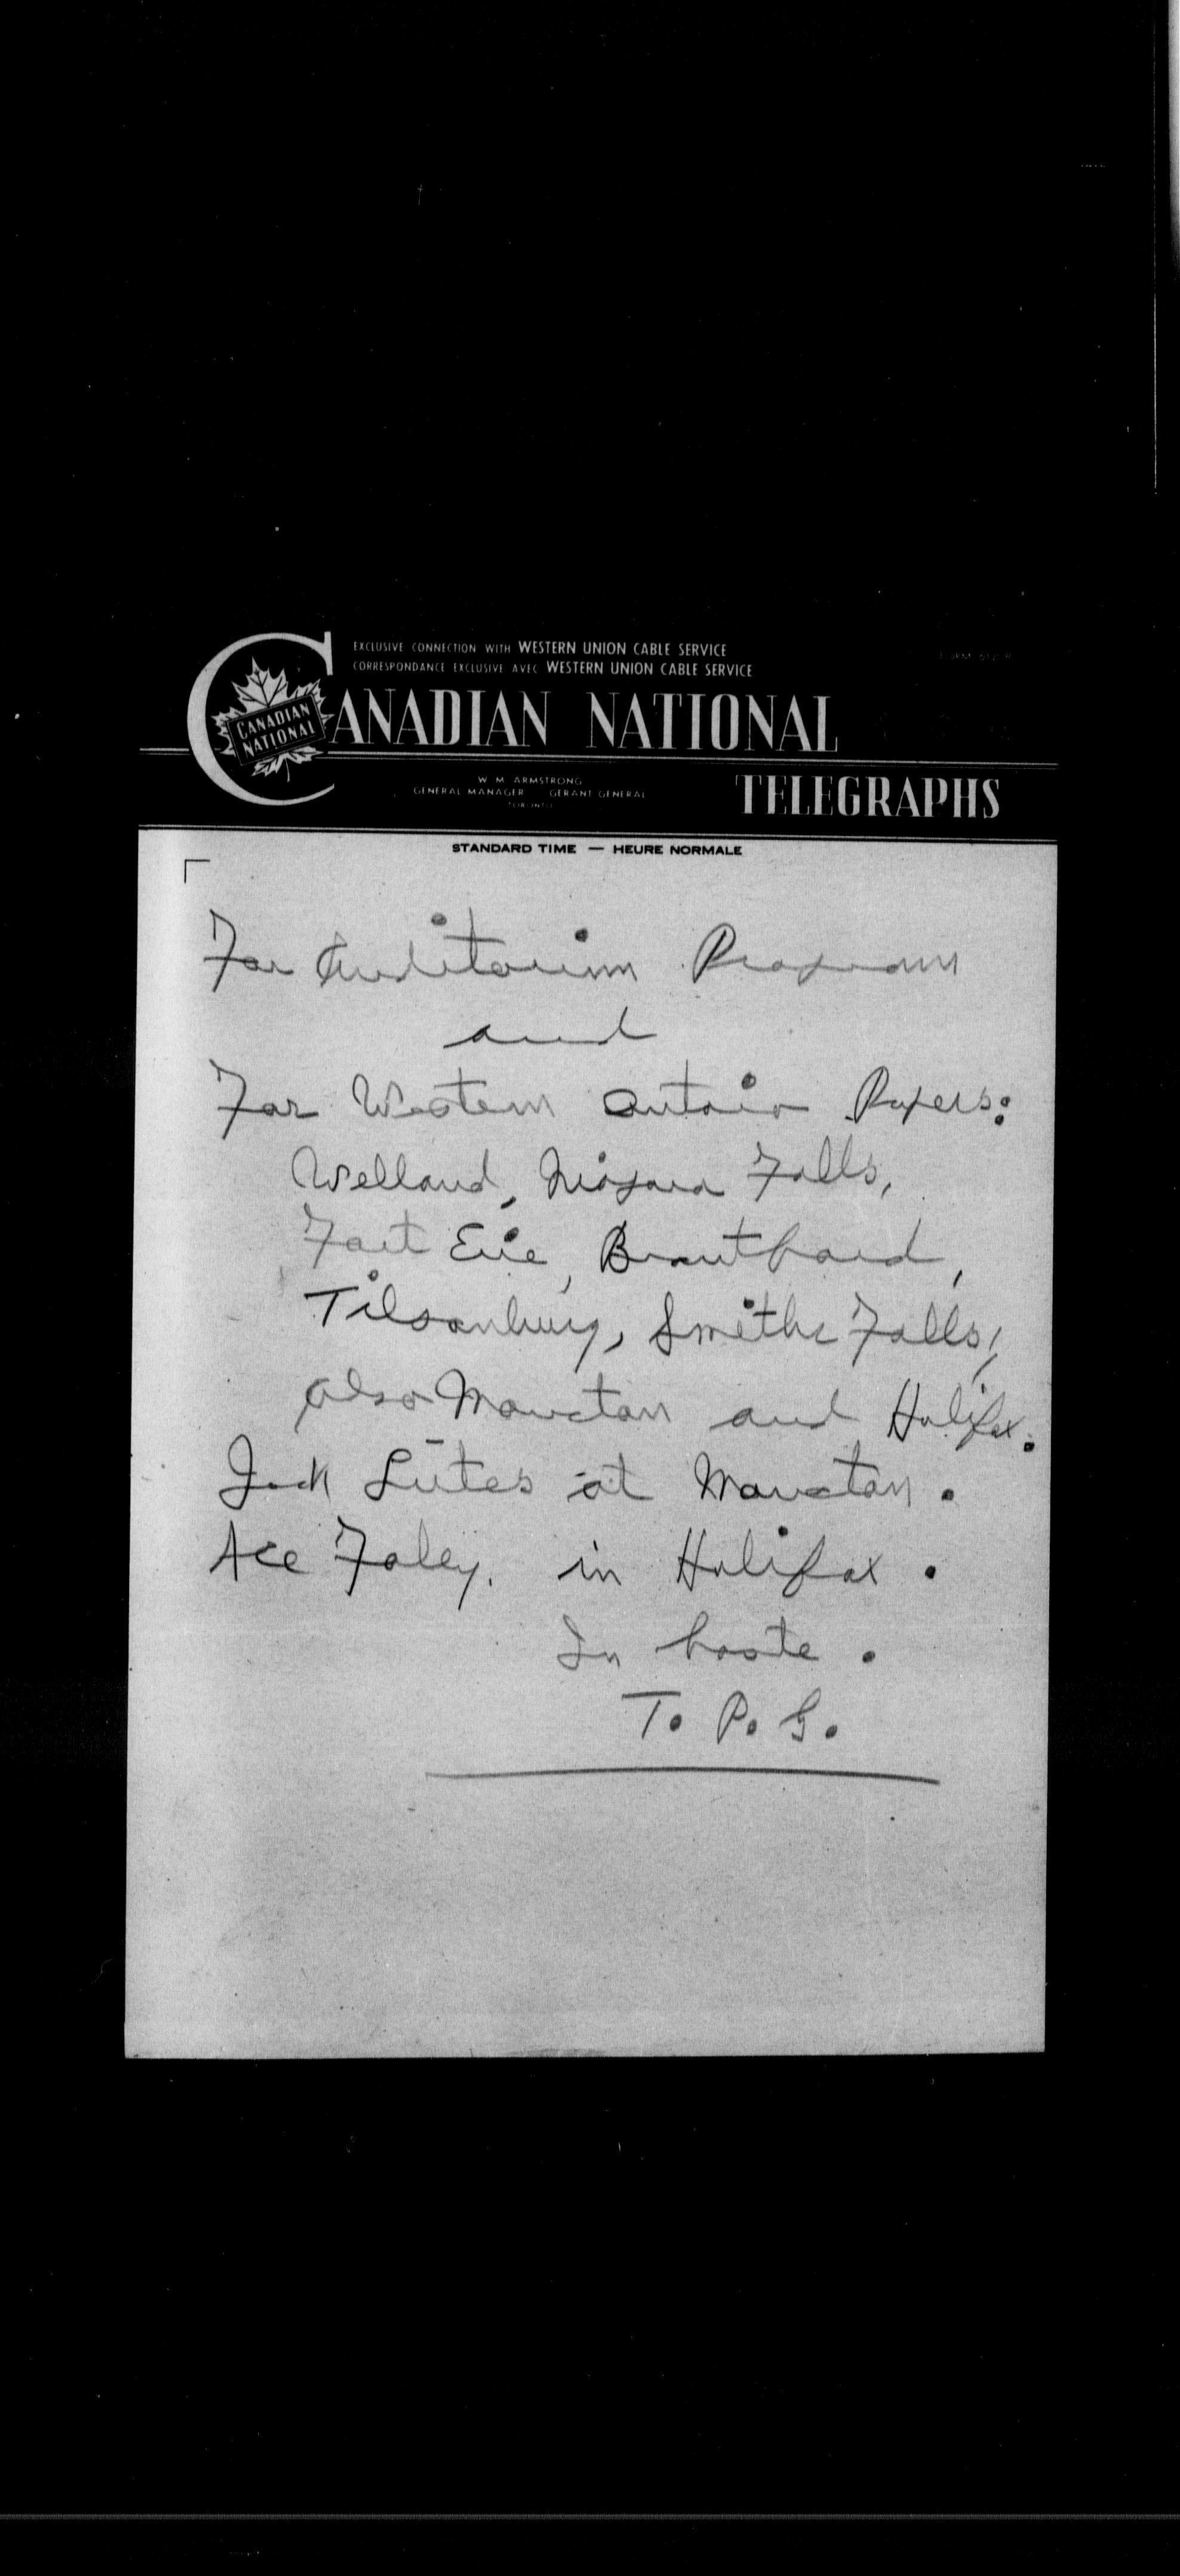 EXCLUSIVE CONNECTION WITH WESTERN UNION CABLE SERVICE
CORRESPONDANCE EXCLUSIVE AVEC WESTERN UNION CABLE SERVICE
CANADIAN NATIONAL
CANADIAN NATIONAL
TELEGRAPHS
W. M. ARMSTRONG
GENERAL MANAGER GERANT GENERAL
TORONTO
STANDARD TIME — HEURE NORMALE
For Auditorium Program
and
For Western Ontario Papers:
Welland, Niagara Falls,
Fort Erie, Brantford,
Tilsonburg, Smiths Falls,
also Moncton and Halifax.
Jack Lutes at Moncton.
Ace Foley. in Halifax.
In haste.
T. P. G.